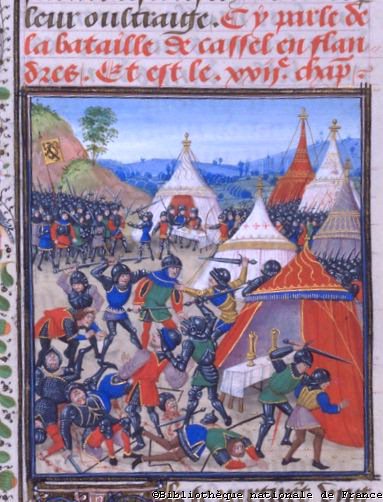 leur oultraige. Cy parle de
la bataille de cassel en flan
dres. Et est le .xvije. chap
©Bibliothèque nationale de France